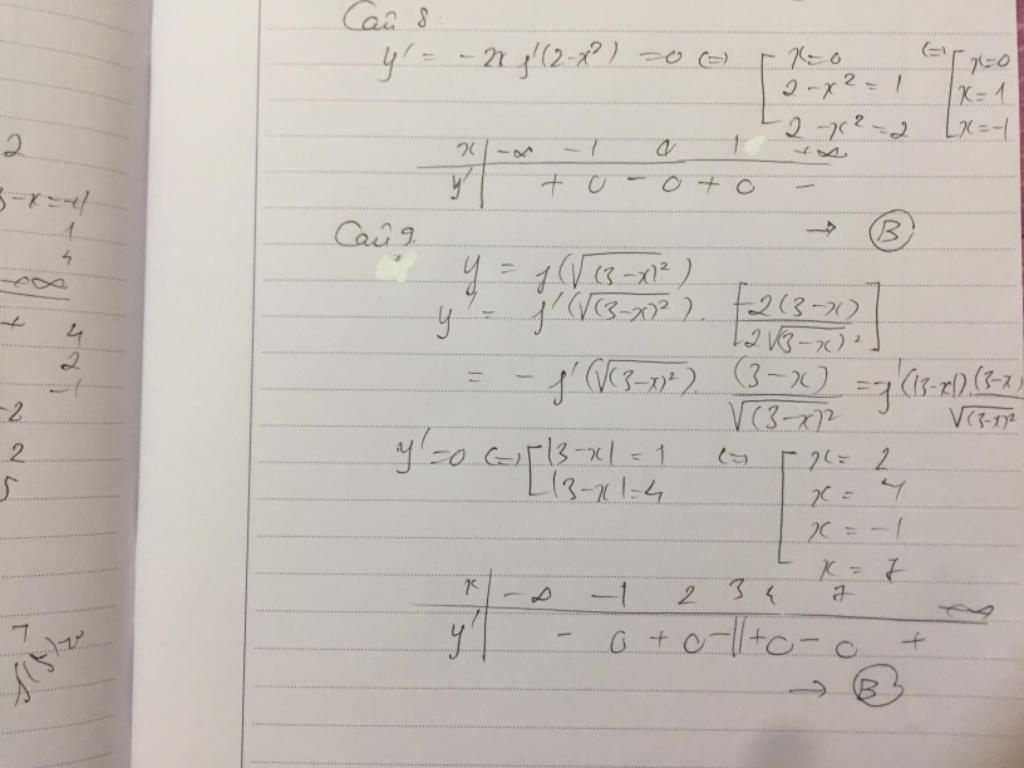 2
3-x=-1
1
4
-∞
+ 4
2
-1
-2
2
5
Câu 8:
y' = -2x f'(2-x²) = 0 (=) [ x=0 (=) [ x=0
2-x² = 1 x=1
2-x² = 2 x=-1
x | -∞ -1 0 1 +∞
y' | + 0 - 0 + 0 -
→ B
Câu 9.
y = f(√(3-x)²)
y' = f'(√(3-x)²). [2(3-x) / 2√(3-x)²]
= - f'(√(3-x)²). (3-x) / √(3-x)² = -f'(|3-x|).(3-x) / √(3-x)²
y'=0 (=) [ |3-x| = 1 (=) [ x= 2
|3-x|=4 x = 4
x = -1
x = 7
x | -∞ -1 2 3 4 7 +∞
y' | - 0 + 0 - || + 0 - 0 +
→ B